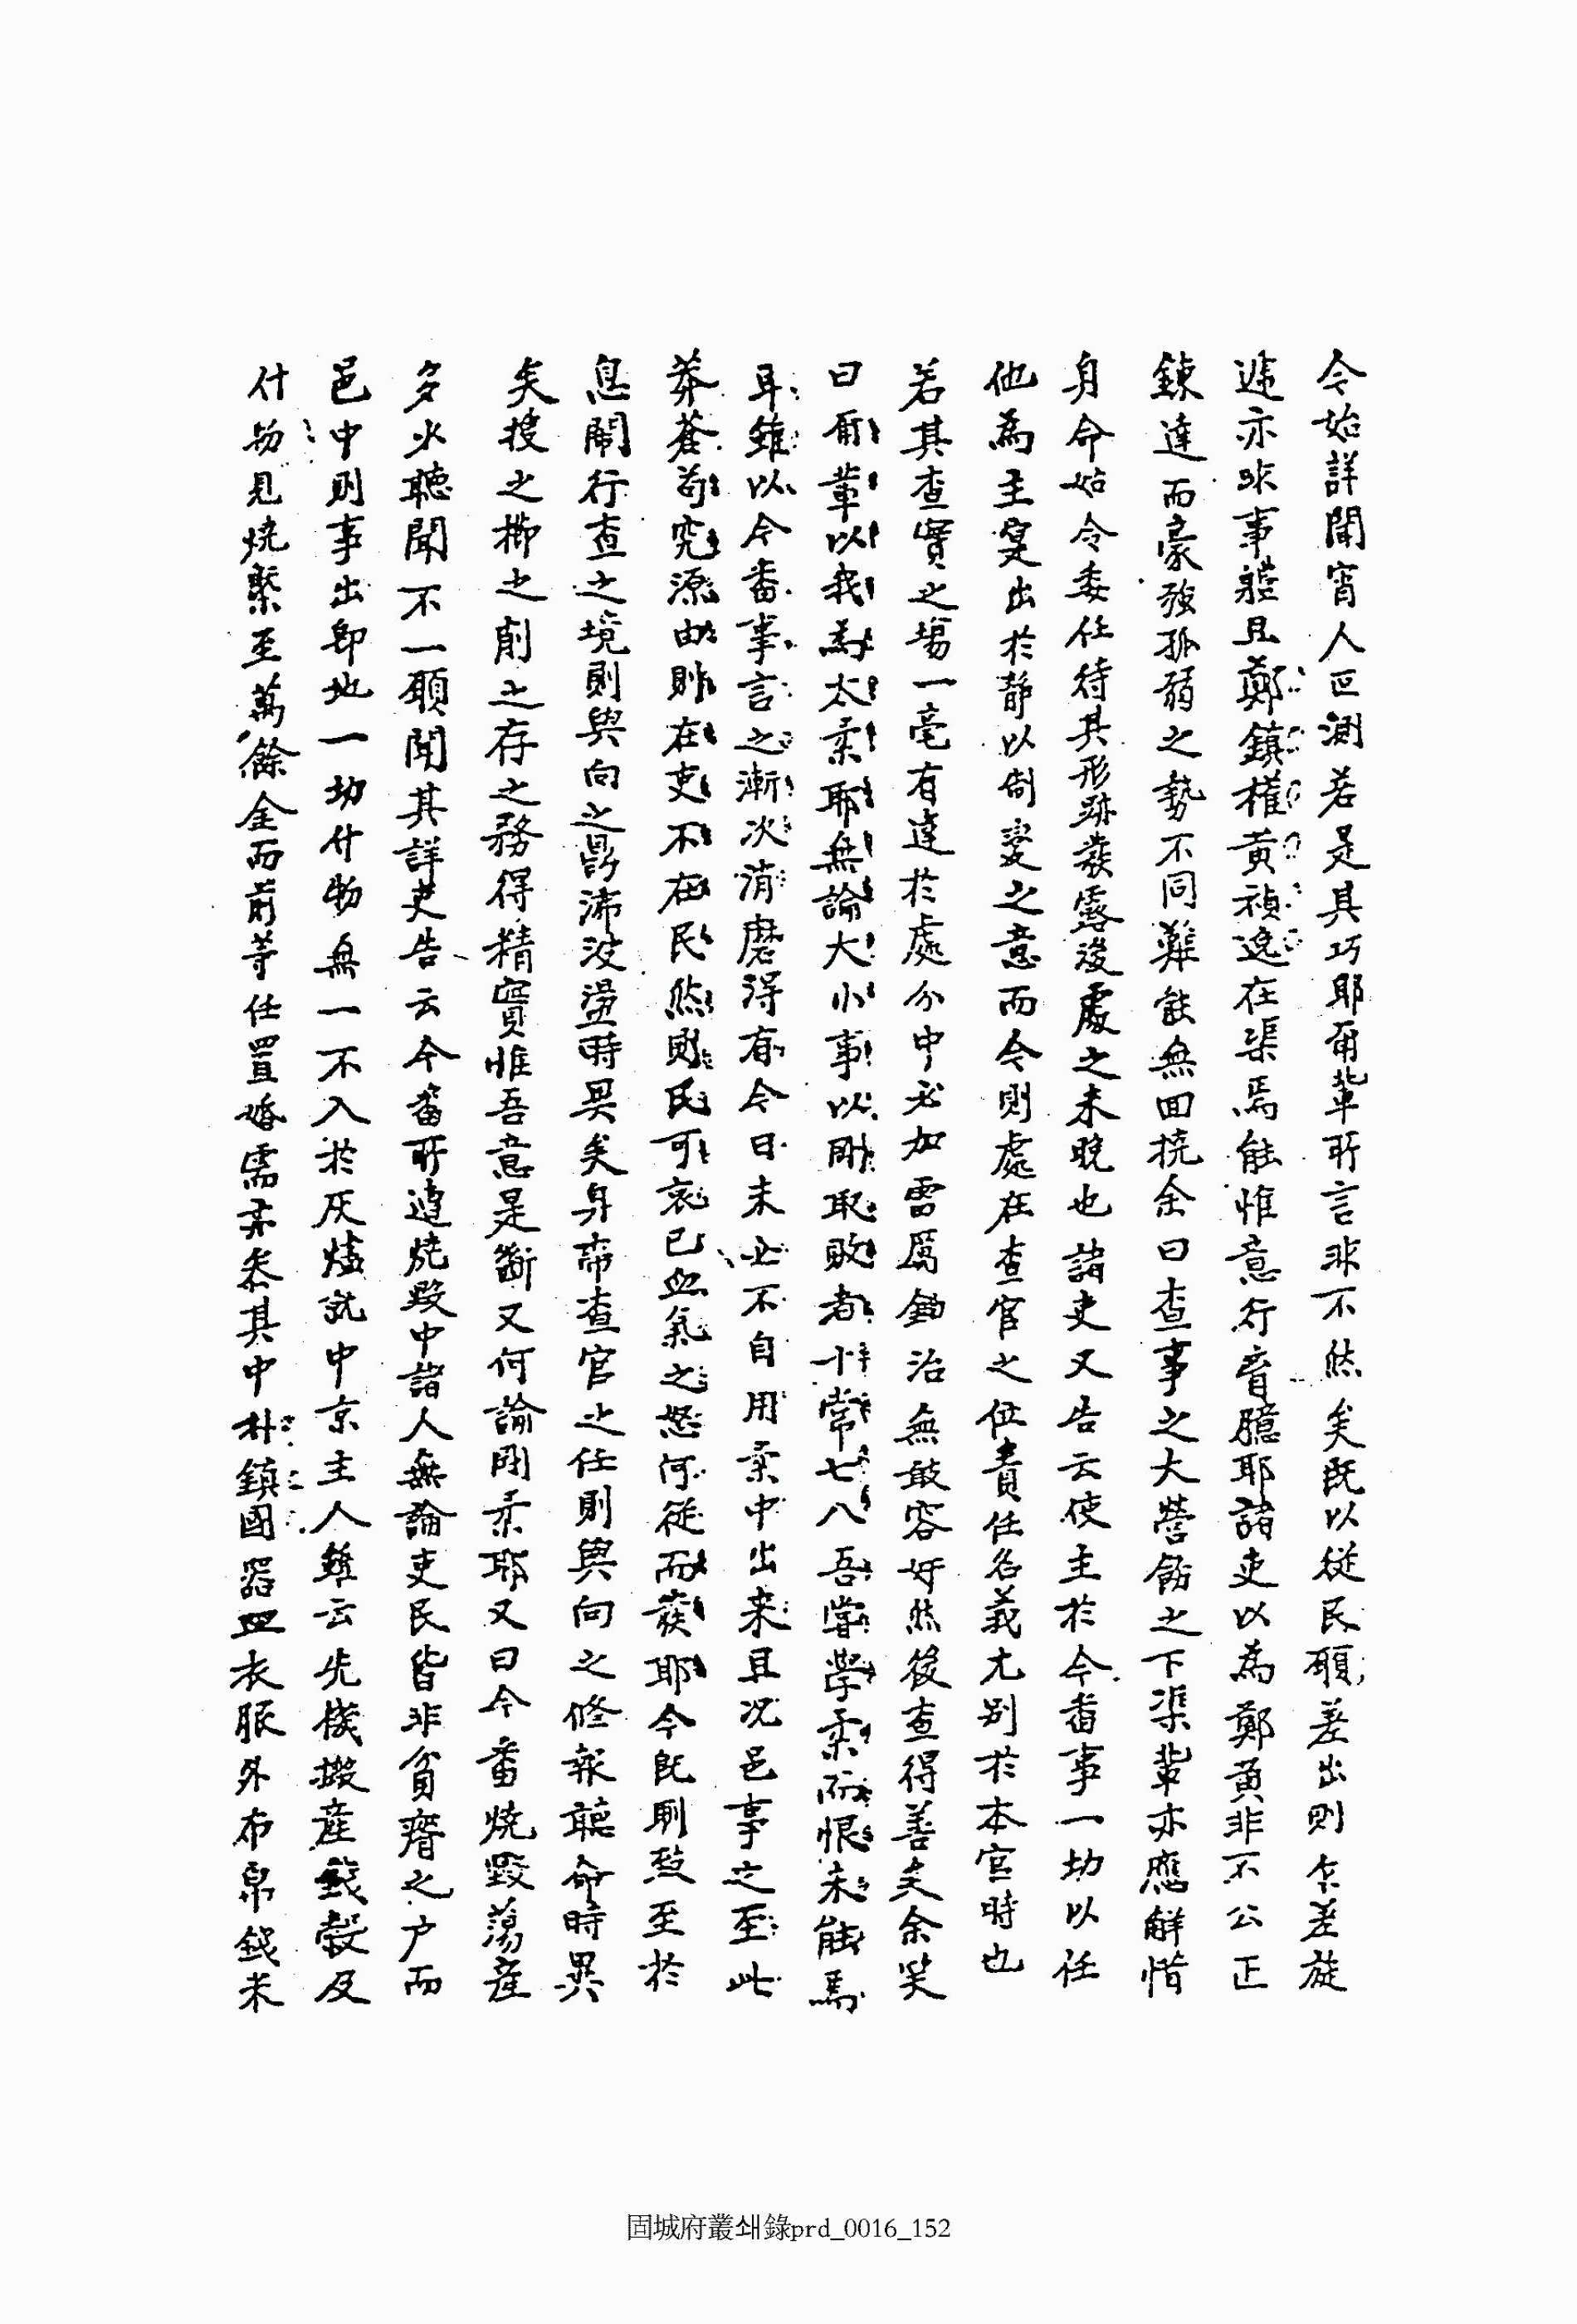 今始詳聞宵人叵測若是其巧耶爾輩所言非不然矣旣以從民願差出則乍差旋
遞亦非事軆且鄭鎭權黃禎逸在渠焉能惟意行胷臆耶諸吏以爲鄭黃非不公正
鍊達而豪強孤弱之勢不同難能無囬撓余曰查事之大營飭之下渠輩亦應解惜
身命姑令委任待其形跡發露後處之未晚也諸吏又告云使主於今番事一切以任
他爲主寔出於靜以制変之意而今則處在查官之位責任名義尤別於本官時也
若其查實之場一毫有違於處分中必加雷厲鋤治無敢容奸然後查得善矣余笑
曰爾輩以我爲太柔耶無論大小事以剛取敗者十常七八吾嘗學柔而恨未能焉
耳雖以今番事言之漸次消磨得有今日未必不自用柔中出来且况邑事之至此
莽蒼苟究源由則在吏不在民然則民可哀已血氣之怒何從而發耶今旣刷愸至於
息鬧行查之境則與向之鼎沸波盪時異矣身帶查官之任則與向之修報聽命時異
矣搜之擲之削之存之務得精實惟吾意是斷又何論剛柔耶又曰今番燒毀蕩産
多少聽聞不一願聞其詳吏告云今番所遭燒毀中諸人無論吏民皆非貧瘠之户而
邑中則事出卽地一切什物無一不入於灰燼就中京主人雖云先機搬産錢穀及
什物見燒槩至萬餘金而前等任置婚需亦叅其中朴鎭國器皿衣服外布帛錢米
固城府叢쇄錄prd_0016_152